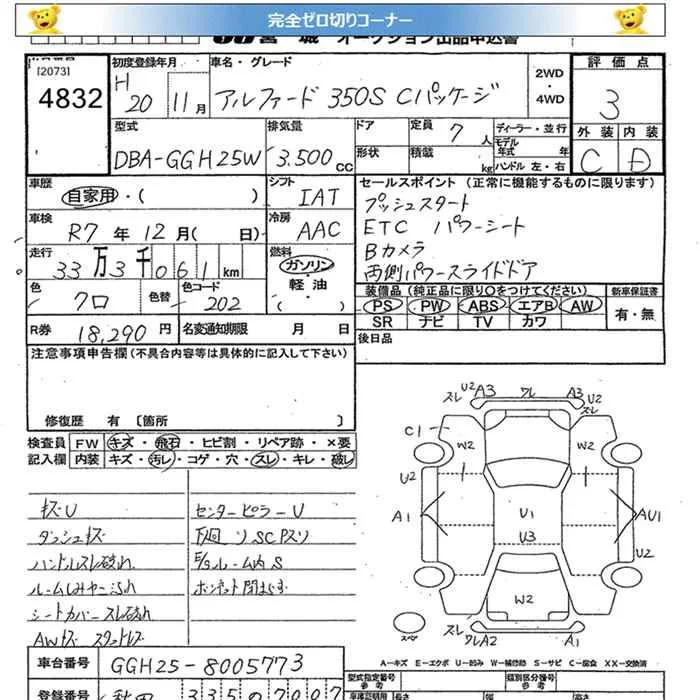 完全ゼロ切りコーナー
宮城 オークション出品申込書
[2073]
4832
初度登録年月 車名・グレード 2WD・4WD 評価点
H20 11月 アルファード 350S Cパッケージ 3
型式 排気量 ドア 定員 7人 ディーラー・並行 外装 内装
DBA-GGH25W 3.500cc 形状 積載 kg モデル年式 年 ハンドル 左・右 C D
車歴 シフト セールスポイント (正常に機能するものに限ります)
自家用・( ) IAT プッシュスタート
車検 冷房 ETC パワーシート
R7年 12月( 日) AAC Bカメラ
走行 燃料 両側パワースライドドア
33万3千061km ガソリン・軽油( )
色 色替 色コード 装備品 (純正品に限り○をつけてください) 新車保証書
クロ 202 PS PW ABS エアB AW 有・無
SR ナビ TV カワ
R券 18,290円 名変通知期限 月 日 後日品
注意事項申告欄(不具合内容等は具体的に記入して下さい)
修復歴 有 〔箇所 〕
検査員 FW キズ・飛石・ヒビ割・リペア跡・×要
記入欄 内装 キズ・汚レ・コゲ・穴・スレ・キレ・破レ
キズU センターピラーU
ダッシュキズ 下廻リSCPスリ
ハンドルスレ破れ E/gルーム内S
ルームしみヤニ汚れ ボンネット閉まらず
シートカバースレ破れ
AWキズ スタットレス
スレ U2 A3 ワレ A3 U2 スレ
C1 W2 W2
U2
A1 U1 AU1
U3
U2
W2
スペ スレ ワレA2 A1
A-キズ E-エクボ U-凹み W-補修跡 S-サビ C-腐食 XX-交換済
車台番号 GGH25-8005773
型式指定番号 参考 類別区分番号 参考
登録番号 秋田 335 0 7007
車庫証明用 長さ